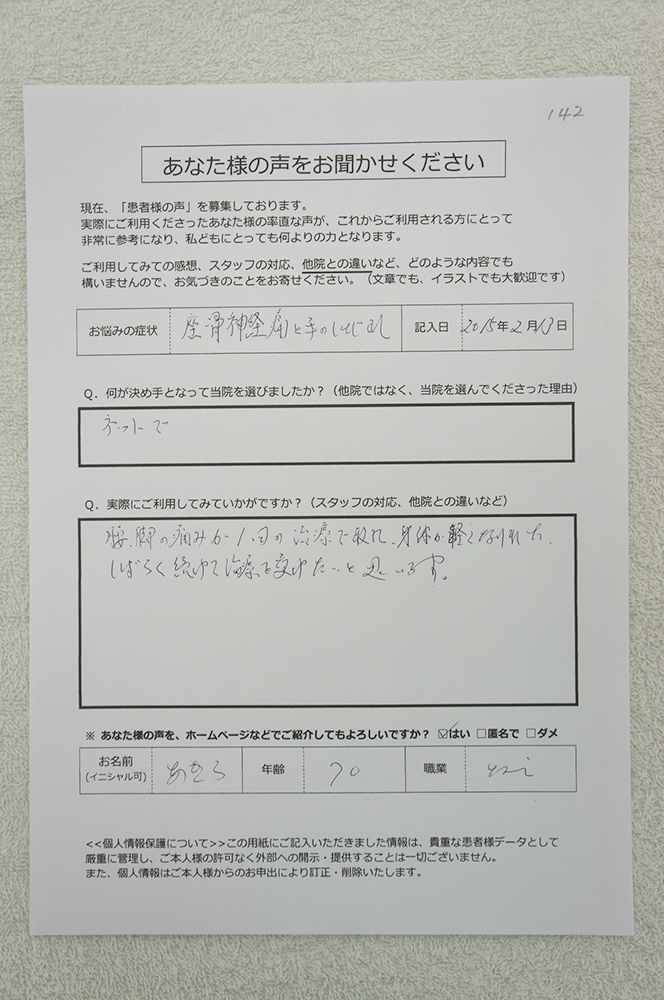 142
あなた様の声をお聞かせください
現在、「患者様の声」を募集しております。
実際にご利用くださったあなた様の率直な声が、これからご利用される方にとって
非常に参考になり、私どもにとっても何よりの力となります。
ご利用してみての感想、スタッフの対応、他院との違いなど、どのような内容でも
構いませんので、お気づきのことをお寄せください。（文章でも、イラストでも大歓迎です）
お悩みの症状 座骨神経痛と手のしびれ 記入日 2015年2月13日
Q．何が決め手となって当院を選びましたか？（他院ではなく、当院を選んでくださった理由）
ネットで
Q．実際にご利用してみていかがですか？（スタッフの対応、他院との違いなど）
腰、脚の痛みが1回の治療で取れ、身体が軽くなりました。
しばらく続けて治療を受けたいと思います。
※ あなた様の声を、ホームページなどでご紹介してもよろしいですか？ ☑はい □匿名で □ダメ
お名前 年齢 70 職業
(イニシャル可)
<<個人情報保護について>>この用紙にご記入いただきました情報は、貴重な患者様データとして
厳重に管理し、ご本人様の許可なく外部への開示・提供することは一切ございません。
また、個人情報はご本人様からのお申出により訂正・削除いたします。